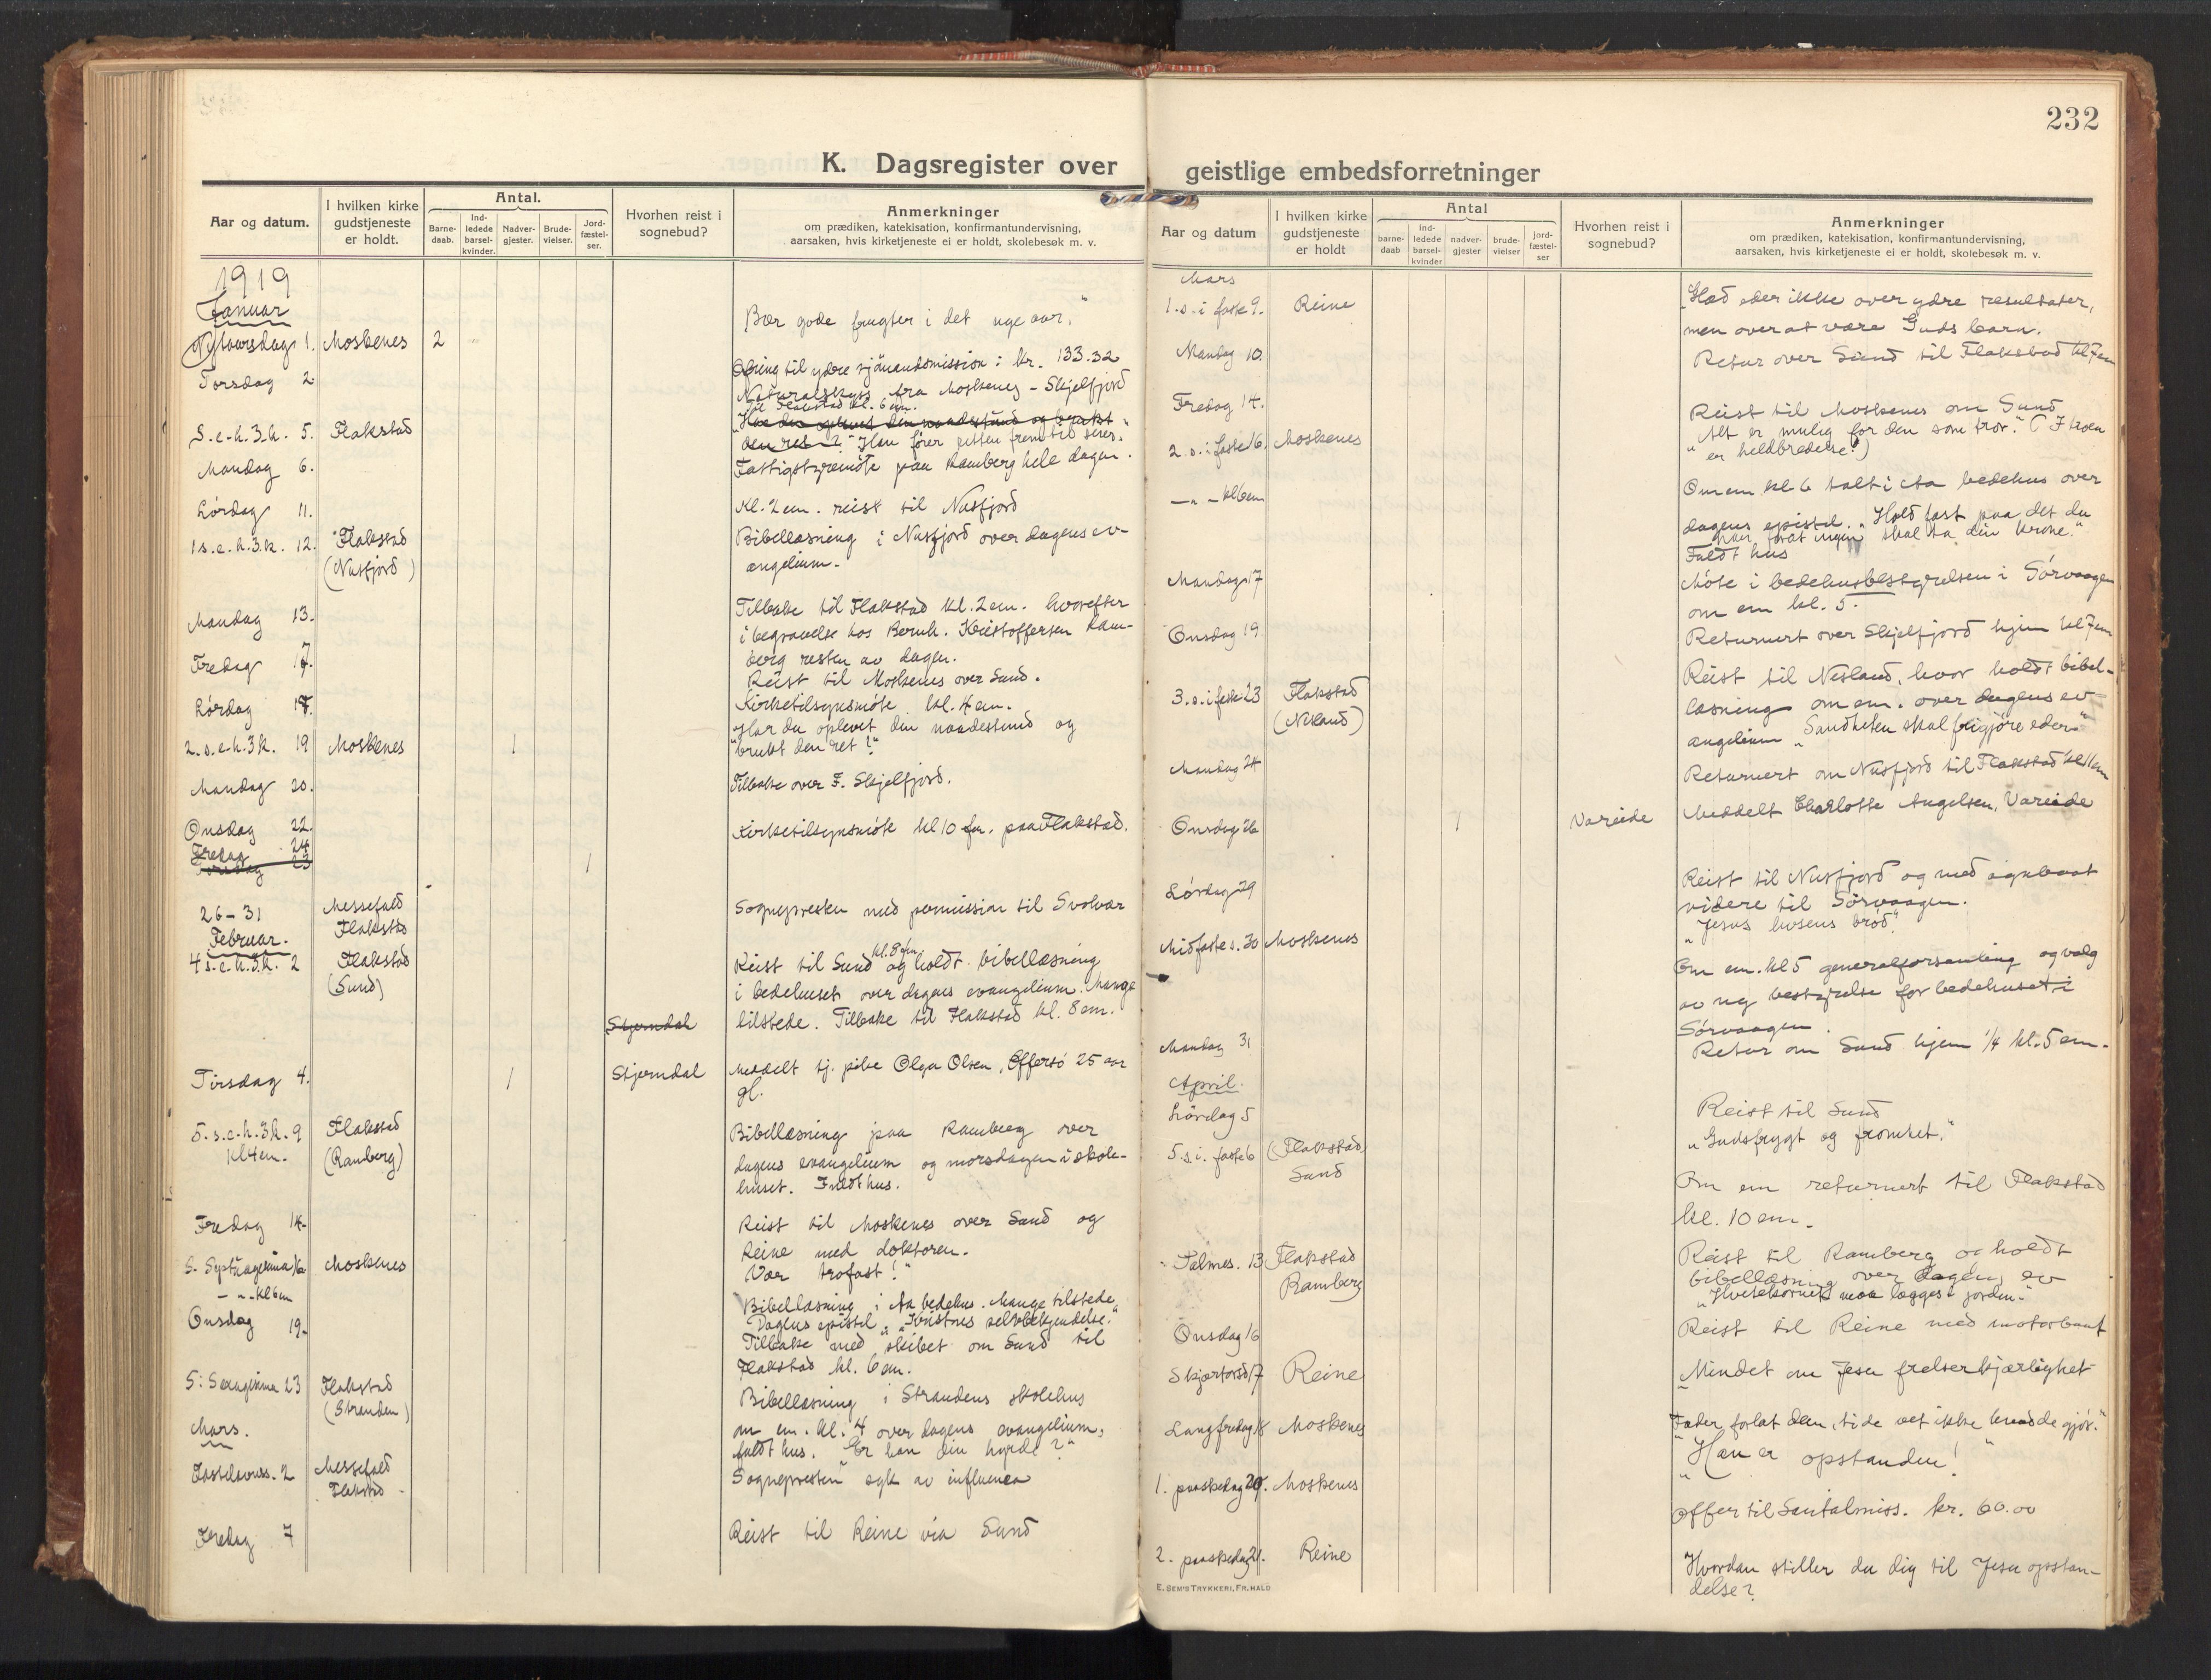 232
K. Dagsregister over geistlige embedsforretninger
Aar og datum.
I hvilken kirke gudstjeneste er holdt.
Antal.
Barne-daab.
Ind-ledede barsel-kvinder.
Nadver-gjester.
Brude-vielser.
Jord-fæstel-ser.
Hvorhen reist i sognebud?
Anmerkninger
om prædiken, katekisation, konfirmantundervisning,
aarsaken, hvis kirketjeneste ei er holdt, skolebesøk m. v.
1919
Januar
"Bær gode frugter i det nye aar."
Nytaarsdag 1. Moskenes 2
Ofring til ydre sjömandsmission: kr. 133.32
Torsdag 2
Naturalskyss fra Moskenes - Skjelfjord
til Flakstad kl. 6 em.
S.e.h.3.k. 5. Flakstad
Har du oplevet din naadestund og brukt
den ret? "Han förer retten frem til seier."
Mandag 6.
Fattigstyremöte paa Ramberg hele dagen.
Lördag 11.
Kl. 2 em. reist til Nusfjord
1 s.e.h.3.k. 12. Flakstad
(Nusfjord)
Bibellæsning i Nusfjord over dagens ev-
angelium.
Mandag 13.
Tilbake til Flakstad kl. 2 em. hvorefter
i begravelse hos Bernh. Kristoffersen Ram-
berg resten av dagen.
Fredag 17.
Reist til Moskenes over Sund.
Lördag 18.
Kirketilsynsmöte kl. 4 em.
2. s.e.h.3k. 19 Moskenes 1
"Har du oplevet din naadestund og
brukt den ret!"
Mandag 20.
Tilbake over F. Skjelfjord.
Onsdag 22.
Kirketilsynsmöte kl 10 fm. paa Flakstad.
Fredag 24 1
Torsdag 23
26-31
Messefald
Flakstad
Sognepresten med permission til Svolvær
Februar.
4 s.e.h.3.k. 2 Flakstad
(Sund)
Reist til Sund kl. 8 fm og holdt bibellæsning
i bedehuset over dagens evangelium. Mange
tilstede. Tilbake til Flakstad kl. 8 em.
Stjerndal
Tirsdag 4. 1 Stjerndal
Meddelt tj. pike Olga Olsen, Offersö 25 aar
gl.
5. s.e.h.3k. 9 Flakstad
kl 4 em. (Ramberg)
Bibellæsning paa Ramberg over
dagens evangelium og morsdagen i skole-
huset. Fuldt hus.
Fredag 14.
Reist til Moskenes over Sund og
Reine med doktoren.
S. Septuagesima 16 Moskenes
"Vær trofast!"
- " - kl 6 em
Bibellæsning i Aa bedehus. Mange tilstede
Dagens epistel, "Kristnes selvbekjendelse."
Onsdag 19.
Tilbake med skibet om Sund til
Flakstad kl. 6 em.
S: Sexagesima 23 Flakstad
(Stranden)
Bibellæsning i Strandens skolehus
om em. kl. 4 over dagens evangelium,
fuldt hus. "Er han din hyrde?"
Mars.
Fastelavnss. 2 Messefald
Flakstad
Sognepresten syk av influensa
Fredag 7
Reist til Reine via Sund
Aar og datum
I hvilken kirke gudstjeneste er holdt
Antal
barne-daab
ind-ledede barsel-kvinder
nadver-gjester
brude-vielser
jord-fæstel-ser
Hvorhen reist i sognebud?
Anmerkninger
om prædiken, katekisation, konfirmantundervisning,
aarsaken, hvis kirketjeneste ei er holdt, skolebesøk m. v.
Mars
1.s.i faste 9. Reine
"Glæd eder ikke over ydre resultater,
men over at være Guds barn.
Mandag 10.
Retur over Sund til Flakstad kl 7 em
Fredag 14.
Reist til Moskenes om Sund
2 s.i faste 16. Moskenes
"Alt er mulig for den som tror." (I troen
er helbredelse!)
- " - kl 6 em
Om em kl 6 talt i Aa bedehus over
dagens epistel. "Hold fast paa det du
har, forat ingen skal ta din krone."
Fuldt hus
Mandag 17
Möte i bedehusbestyrelsen i Sörvaagen
om em kl. 5.
Onsdag 19
Returnert over Skjelfjord hjem kl 7 em
3.s.i faste 23 Flakstad
(Nesland)
Reist til Nesland, hvor holdt bibel-
læsning om em. over dagens ev
angelium "Sandheten skal frigjöre eder."
Mandag 24
Returnert om Nusfjord til Flakstad kl 11 em
Onsdag 26 1 Vareide
Meddelt Charlotte Angelsen, Vareide
Lördag 29
Reist til Nusfjord og med agnbaat
videre til Sörvaagen.
Midfastes. 30 Moskenes
"Jesus livsens bröd."
Om em. kl 5 generalforsamling og valg
av ny bestyrelse for bedehuset i
Sörvaagen.
Mandag 31
Retur om Sund hjem 1/4 kl. 5 em.
April.
Lördag 5
Reist til Sund
5.s.i. faste 6 (Flakstad)
Sund
"Gudsfrygt og fromhet."
Om em returnert til Flakstad
kl. 10 em.
Palmes. 13 Flakstad
Ramberg
Reist til Ramberg og holdt
bibellæsning over dagens ev
"Hvetekornet maa lægges i jorden."
Onsdag 16
Reist til Reine med motorbaat
Skjærtorsd 17 Reine
"Mindet om Jesu frelserkjærlighet
Langfredag 18 Moskenes
"Fader forlat dem, ti de vet ikke hvad de gjör."
1. paaskedag 20. Moskenes
"Han er opstanden!"
Offer til Santalmiss. kr. 60.00
2. paaskedag 21. Reine
Hvordan stiller du dig til Jesu opstan-
delse?
E. SEM'S TRYKKERI, FR.HALD